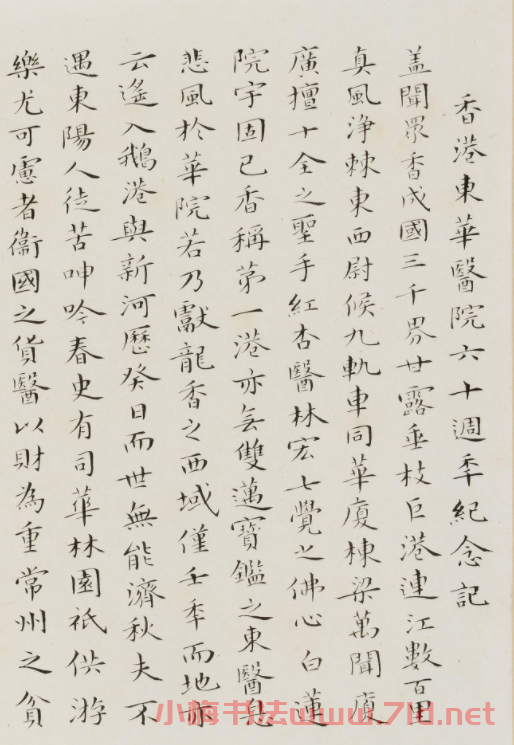 香港東華醫院六十週年紀念記
盖聞眾香成國三千界甘露垂枝巨港連江數百里
真風淨棘東西尉候九軌車同華廈棟梁萬間廈
廣擅十全之聖手紅杏醫林宏七覺之佛心白蓮
院宇固已香稱苐一港亦無雙邁寶鑑之東醫息
悲風於華院若乃獻龍香之西域僅壬年而地亦
云遙入鵝港與新河歷癸日而世無能濟秋夫不
遇東陽人徒苦呻吟春史有司華林園祇供游
樂尤可慮者衞國之貨醫以財為重常州之貧
小梅书法www.7M.net